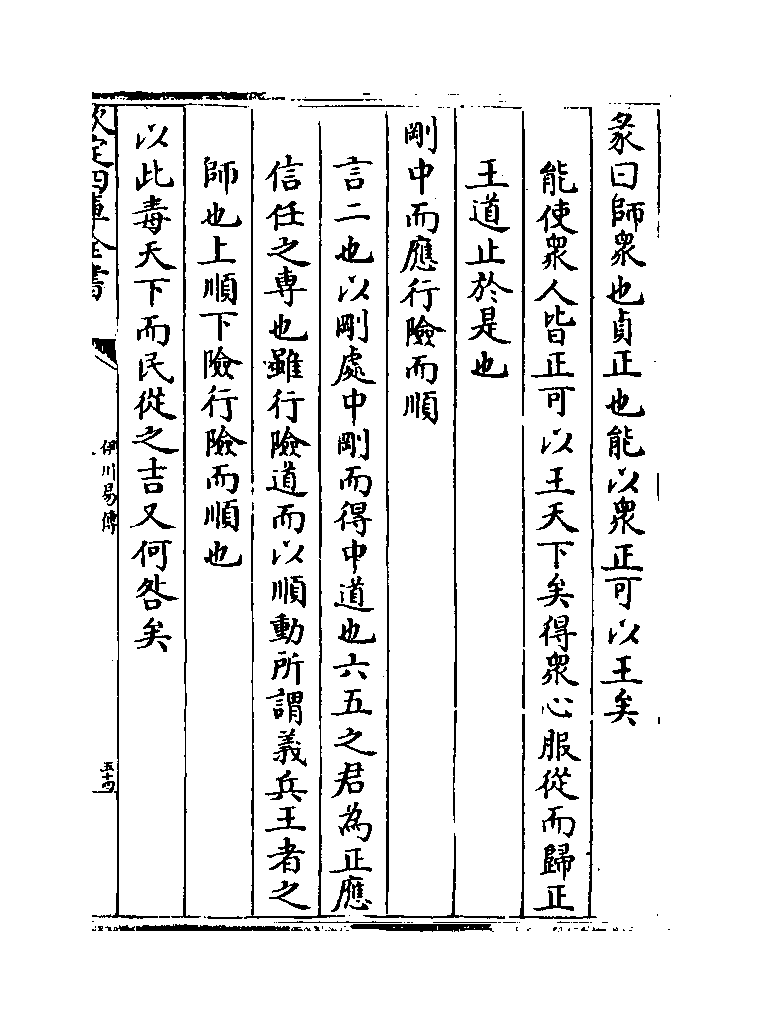 彖曰師衆也貞正也能以衆正可以王矣
能使衆人皆正可以王天下矣得衆心服從而歸正
王道止於是也
剛中而應行險而順
言二也以剛處中剛而得中道也六五之君為正應
信任之専也雖行險道而以順動所謂義兵王者之
師也上順下險行險而順也
以此毒天下而民從之吉又何咎矣
欽定四庫全書
伊川易傳
五十四